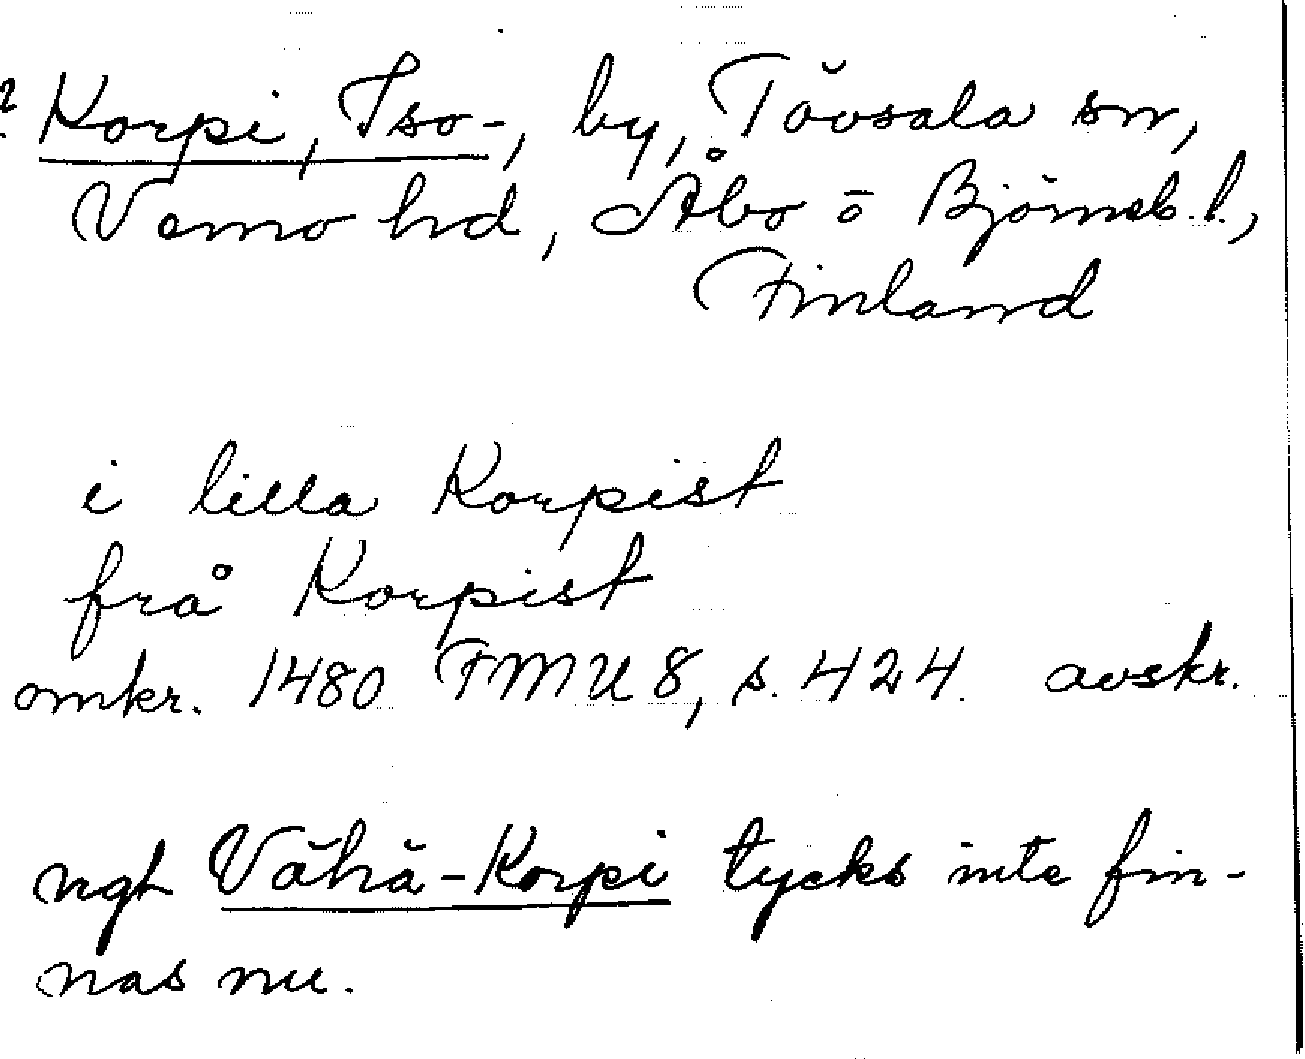 ? Korpi, Iso-, by, Tövsala sn,
Vemo hd, Åbo o Björneb. l.,
Finland
i lilla Korpist
frå Korpist
omkr. 1480 FMU 8, s. 424. avskr.
ngt Vähä-Korpi tycks inte fin-
nas nu.